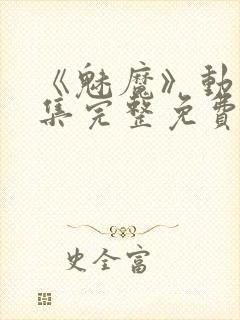 《魅魔》動
集完整免費
史全富